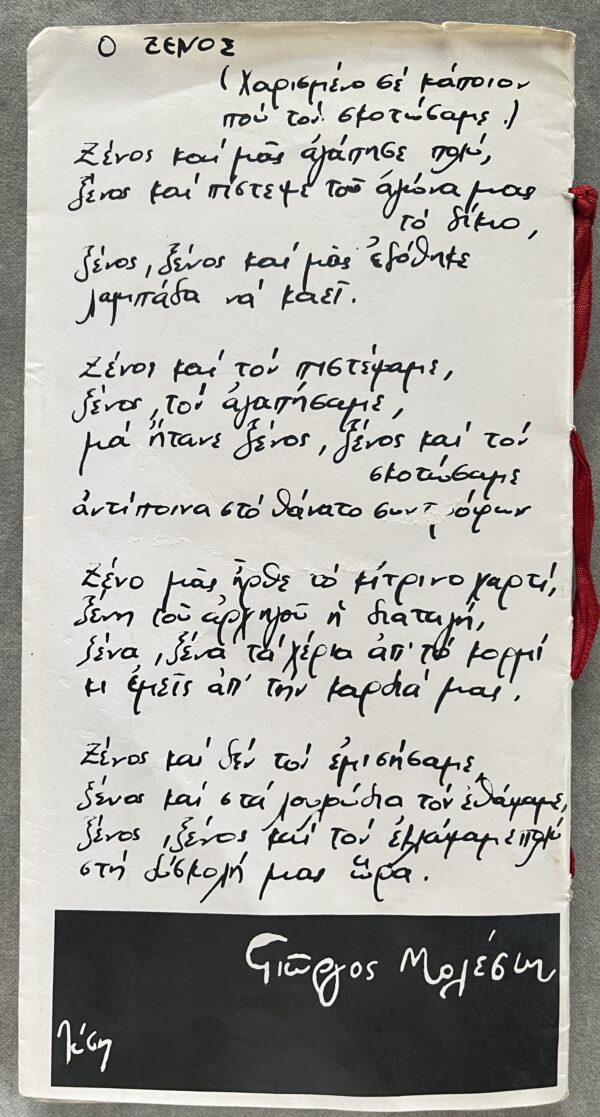 Ο ΞΕΝΟΣ
(Χαρισμένο σέ κάποιον
πού τόν σκοτώσαμε.)
Ξένος καί μᾶς ἀγάπησε πολύ,
ξένος καί πίστεψε τοῦ ἀγώνα μας
τό δίκιο,
ξένος, ξένος καί μᾶς ἐδόθηκε
λαμπάδα νά καεῖ.
Ξένος καί τόν πιστέψαμε,
ξένος, τόν ἀγαπήσαμε,
μά ἤτανε ξένος, ξένος καί τόν
σκοτώσαμε
ἀντίποινα στό θάνατο συντρόφων
Ξένο μᾶς ἦρθε τό κίτρινο χαρτί,
ξένη τοῦ ἀρχηγοῦ ἡ διαταγή,
ξένα, ξένα τά χέρια ἀπ' τό κορμί
κι ἐμεῖς ἀπ' τήν καρδιά μας.
Ξένος καί δέν τόν ἐμισήσαμε,
ξένος καί στά λουλούδια τόν ἐθάψαμε,
ξένος, ξένος καί τόν ἐκλάψαμε πολύ
στή δύσκολή μας ὥρα.
Γιῶργος Μολέσκης
Λύση